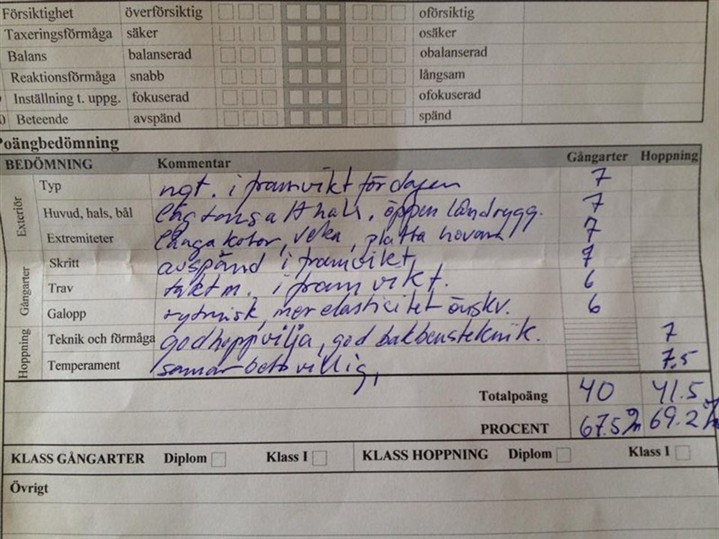 Försiktighet överförsiktig oförsiktig
Taxeringsförmåga säker osäker
Balans balanserad obalanserad
Reaktionsförmåga snabb långsam
Inställning t. uppg. fokuserad ofokuserad
0 Beteende avspänd spänd
Poängbedömning
BEDÖMNING Kommentar Gångarter Hoppning
Exteriör
Typ ngt. i framvikt för dagen 7
Huvud, hals, bål lågt ansatt hals, öppen ländrygg. 7
Extremiteter långa kotor, veka, platta hovar 7
Gångarter
Skritt avspänd i framvikt 7
Trav taktm. i framvikt. 6
Galopp rytmisk, mer elasticitet önskv. 6
Hoppning
Teknik och förmåga god hoppvilja, god bakbensteknik. 7
Temperament villig, 7.5
Totalpoäng 40 41.5
PROCENT 67.5% 69.2%
KLASS GÅNGARTER Diplom Klass I KLASS HOPPNING Diplom Klass I
Övrigt